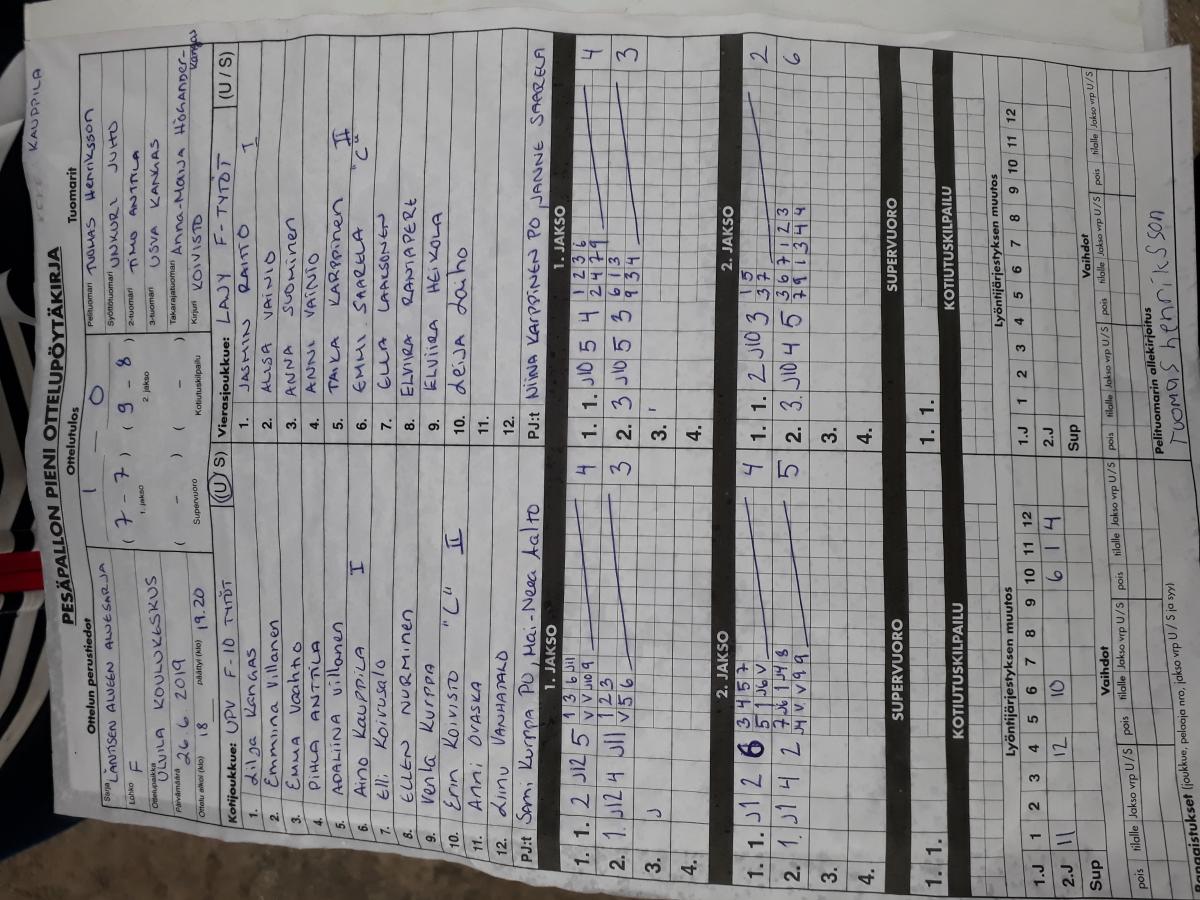 KAUPPILA
PESÄPALLON PIENI OTTELUPÖYTÄKIRJA
Ottelun perustiedot
Sarja LÄNTISEN ALUEEN ALUESARJA
Lohko F
Ottelupaikka ULVILA KOULUKESKUS
Päivämäärä 26.6.2019
Ottelu alkoi (klo) 18 päättyi (klo) 19.20
Ottelutulos
1 — 0
( 7 - 7 ) ( 9 - 8 )
1. jakso 2. jakso
( - ) ( - )
Supervuoro Kotiutuskilpailu
Tuomarit
Pelituomari TUOMAS Henriksson
Syöttötuomari UNKURI JUHO
2-tuomari TIMO ANTTILA
3-tuomari USVA KANGAS
Takarajatuomari Anna-Maija Högander-Kangas
Kirjuri KOIVISTO
Kotijoukkue: UPV F-10 TYTÖT (U/S)
1. Lilja Kangas
2. Emmina Villanen
3. Emma Vaahto
4. PIHLA ANTTILA
5. ADALIINA Villanen
6. Aino Kauppila I
7. Elli Koivusalo
8. ELLEN NURMINEN
9. Venla Kurppa
10. Erin Koivisto "L" II
11. Anni OVASKA
12. Linu VANHATALO
PJ:t Sami Kurppa PO, Mai-Neea Aalto
Vierasjoukkue: LAJY F-TYTÖT (U/S)
1. JASMIN RAITTO I
2. ALISA VAINIO
3. ANNA SUOMINEN
4. ANNI VAINIO
5. TAIKA KARPPINEN
6. EMMI SAARELA "C" II
7. ELLA LAAKSONEN
8. ELVIRA RANTAPERE
9. ELVIIRA HEIKOLA
10. Leija Laiho
11.
12.
PJ:t NIINA KARPPINEN PO JANNE SAARELA
1. JAKSO
1. 1. 2 J12 5 1 3 6 J11 4
V V J10 9
2. 1. J12 4 J11 1 2 3 3
V 5 6
3.
4.
1. JAKSO
1. 1. J10 5 4 1 2 3 6 4
2 4 7 9
2. 3 J10 5 3 6 1 3 3
9 3 4
3.
4.
2. JAKSO
1. 1. J1 2 6 3 4 5 7 4
5 J J6 V
2. 1. J1 4 2 7 J6 1 J4 8 5
J4 V V 9 9
3.
4.
2. JAKSO
1. 1. 2 J10 3 1 5 2
3 7
2. 3. J10 4 5 3 6 7 1 2 3 6
7 9 1 3 4 4
3.
4.
SUPERVUORO
1. 1.
SUPERVUORO
1. 1.
KOTIUTUSKILPAILU
KOTIUTUSKILPAILU
Lyöntijärjestyksen muutos
1.J 1 2 3 4 5 6 7 8 9 10 11 12
2.J 11 12 10 6 1 4
Sup
Lyöntijärjestyksen muutos
1.J 1 2 3 4 5 6 7 8 9 10 11 12
2.J
Sup
Vaihdot
pois tilalle Jakso vrp U/S pois tilalle Jakso vrp U/S pois tilalle Jakso vrp U/S
Vaihdot
pois tilalle Jakso vrp U/S pois tilalle Jakso vrp U/S pois tilalle Jakso vrp U/S
Rangaistukset (joukkue, pelaaja no, jakso vrp U/S ja syy)
Pelituomarin allekirjoitus
Tuomas Henriksson